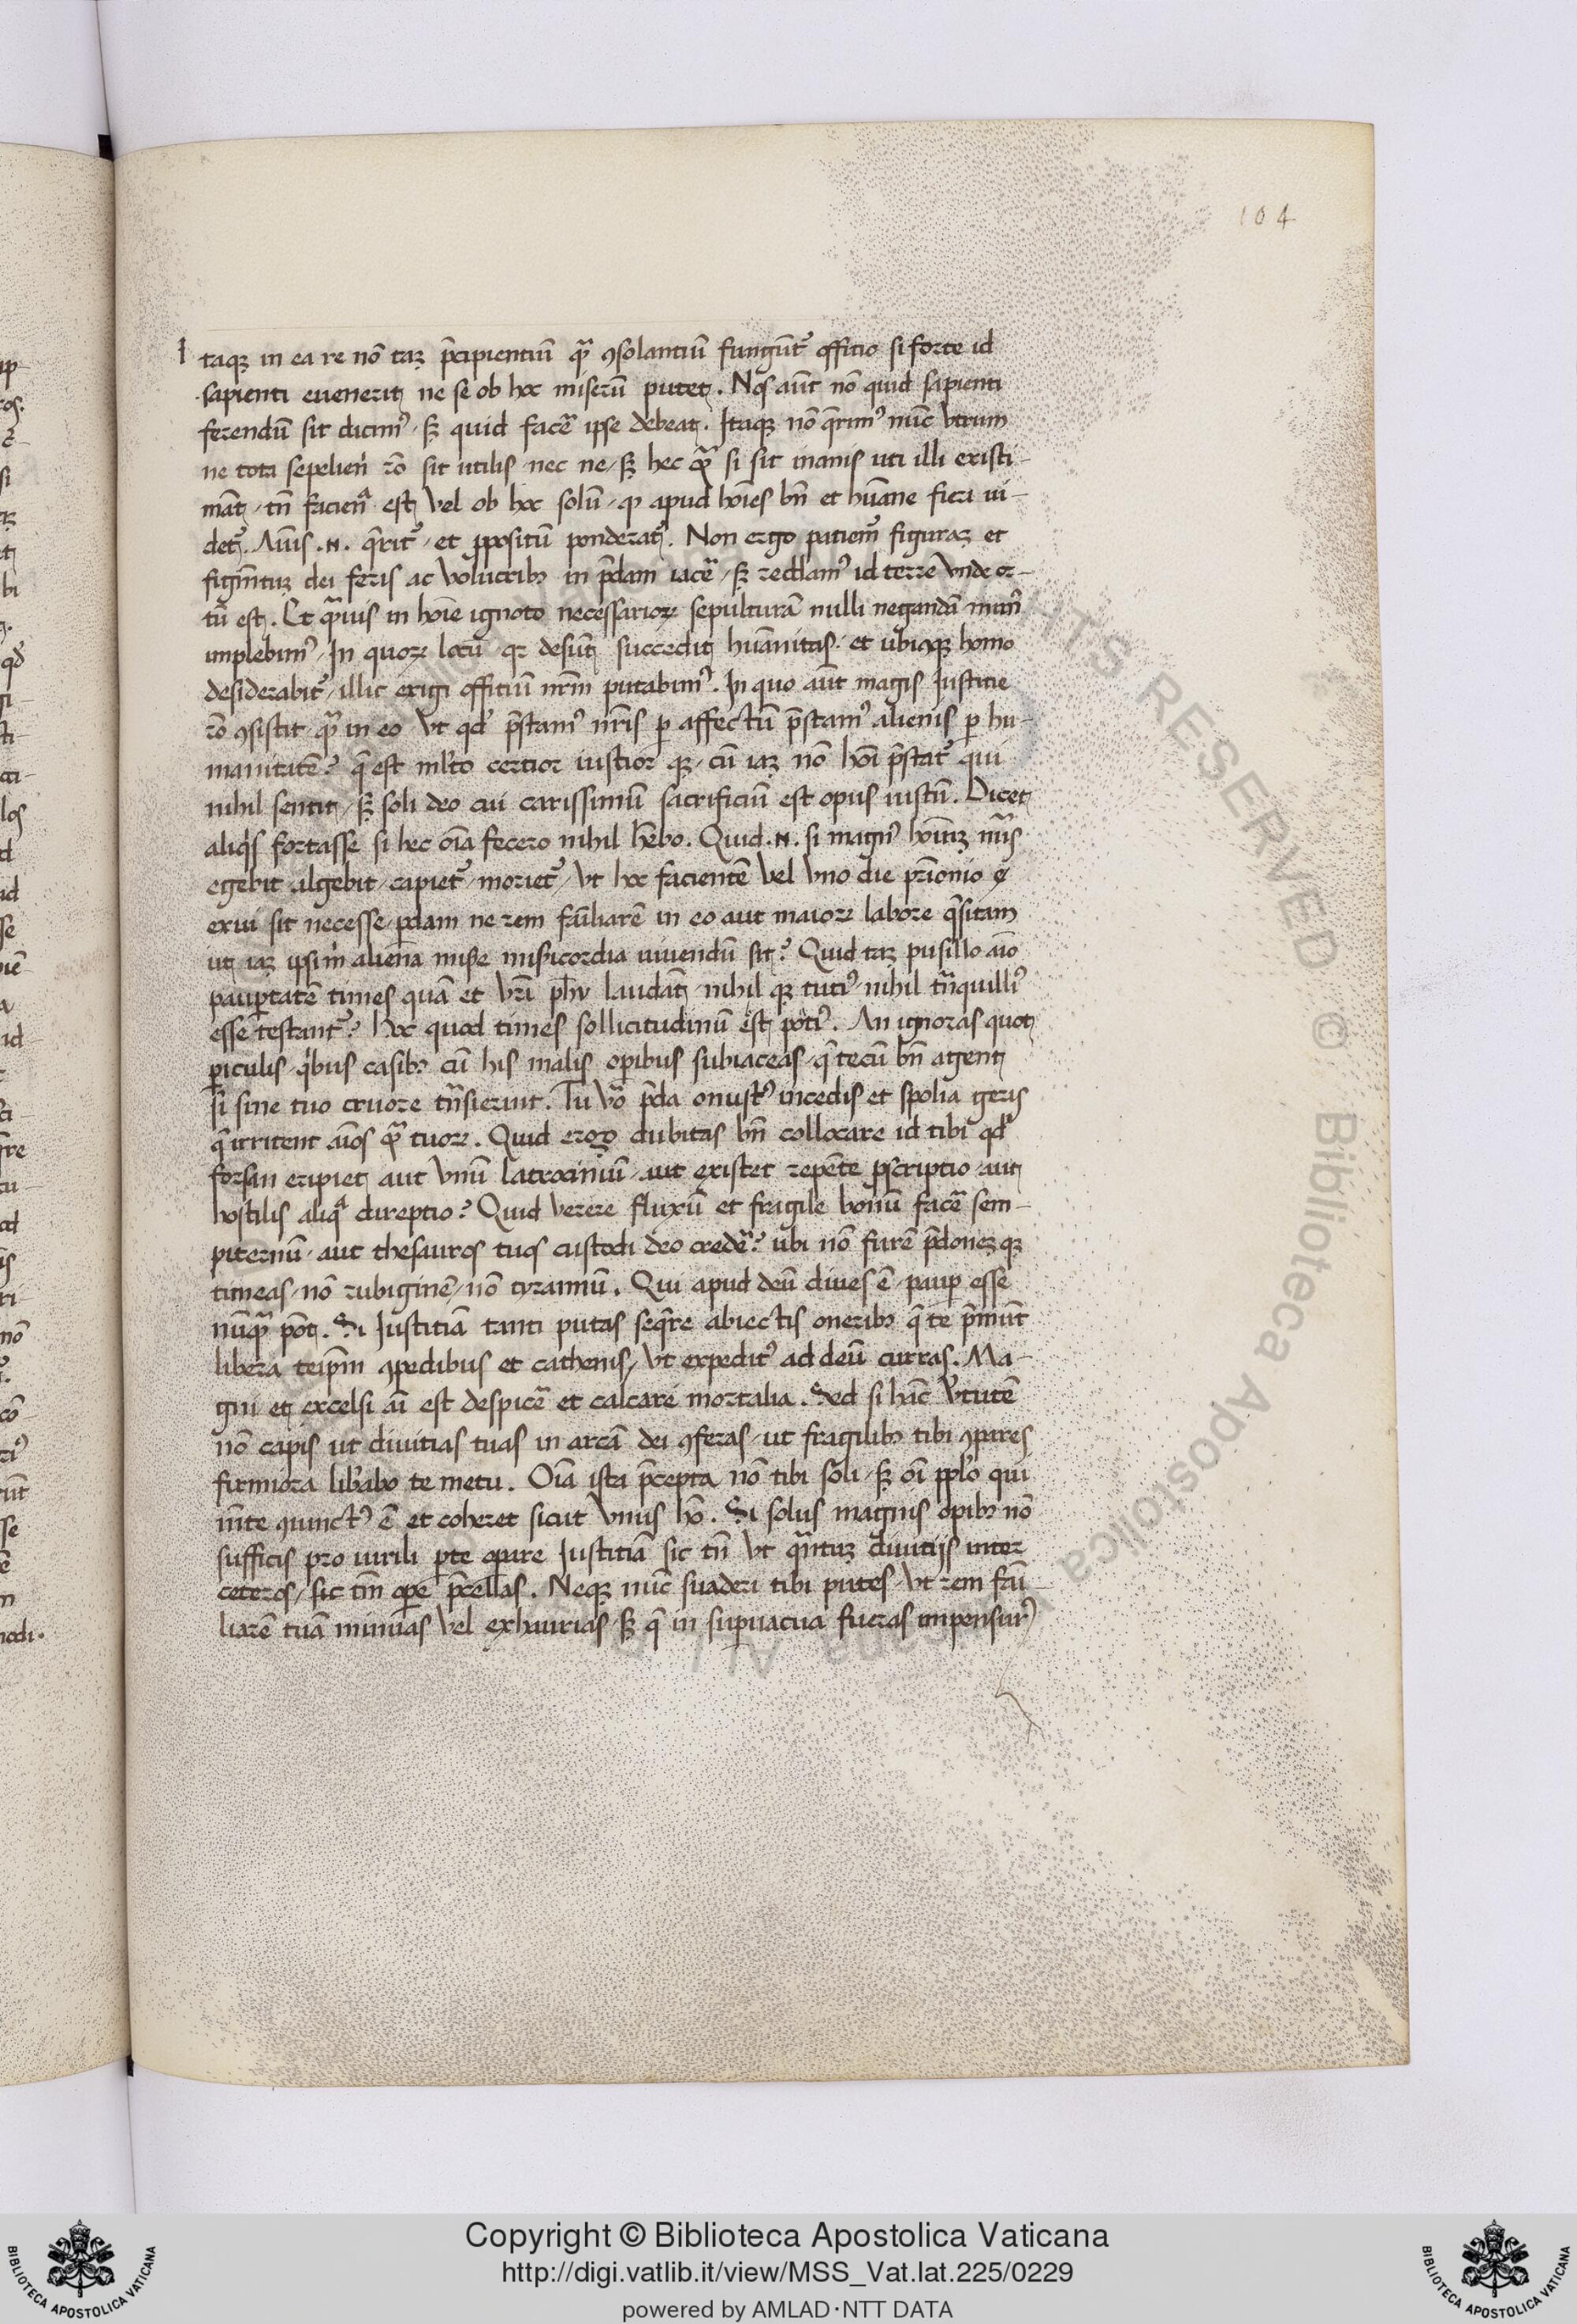 104
Itaqꝫ in ea re nō taꝫ p̄cipientiū qͣ ꝯsolantiū fungūt᷒ officio si forte id
sapienti euenerit ne se ob hoc miserū putet. Nos aūt nō quid sapienti
ferendū sit dicimꝰ, sꝫ quid facē ipse debeat. Itaqꝫ nō q̄rimꝰ nūc vtrum
ne tota sepelien rō sit utilis nec ne, sꝫ hec qͣ si sit inanis uti illi existi-
māt, tn̄ facienͣ est vel ob hoc solū, ꝙ apud hoīes bn̄ et huāne fieri ui-
det᷒. Aīus .N. q̄rit᷒, et ꝓpositū ponderat᷒. Non ergo patiem᷒ figuraꝫ et
figm̄tuꝫ dei feris ac volucribꝫ in p̄dam iacē, sꝫ reddamꝰ id terre vnde or-
tū est. Et qͣuis in hoīe ignoto necessarioꝝ sepulturā nulli negandā munꝰ
implebimꝰ, In quoꝝ locū qꝛ desūt succedit huānitas. et ubicqꝫ homo
desiderabit᷒, illic exigi officiū nr̄m putabimꝰ. In quo aūt magis Justitie
rō ꝯsistit qͣ in eo vt qd̓ p̄stamꝰ nr̄is ꝑ affectū p̄stamꝰ alienis ꝑ hu-
manitatē? q̄ est ml̓to certior iustior qꝫ, cū iaꝫ nō hōi p̄stat᷒ qui
nihil sentit, sꝫ soli deo cui carissimū sacrificiū est opus iustū. Dicet
aliqͥs fortasse si hec oīa fecero nihil hēbo. Quid .N. si magnꝰ hoīuꝫ nūs
egebit algebit, capiet᷒, moriet᷒, vt hoc facientē vel vno die pr̄ionio ę
exui sit necesse, ꝑdam ne rem fāiliarē in eo aut maioꝝ labore q̄sitam
ut iaꝫ ipsim aliena mise mi̅sicordia uiuendū sit? Quid taꝫ pusillo aīo
paupertatē times quā et vr̄i phi̅ laudāt, nihil qꝫ tutiꝰ, nihil tn̄quilliꝰ
esse testant᷒? Hoc quod times sollicitudinū est potiꝰ. An ignoras quot
ꝑiculis, qͥbus casibꝫ cū his malis opibus subiaceas, q̄ tecū bn̄ agent
si sine tuo cruore tn̄sierint. Tu vͦo p̄da onustꝰ incedis et spolia geris
q̄ irritent aīos qͣ tuoꝝ. Quid ergo dubitas bn̄ collocare id tibi qd̓
forsan eripiet aut vnū latrociniū, aut existet repēte ꝓscriptio, aut
hostilis aliqͣ direptio? Quid verere fluxū et fragile bonū facē sem-
piternū, aut thesauros tuos custodi deo credē? ubi nō furē p̄donēqꝫ
timeas, nō rubiginē, nō tyrannū. Qui apud deū diues ē, pauꝑ esse
nūqͣ pōt. Si Justitiā tanti putas seq̄re abiectis oneribꝫ q̄ te p̄mūt
libera teip̄m ꝯpedibus et cathenis, vt expeditꝰ ad deū curras. Ma-
gni et excelsi aī est despicē et calcare mortalia. Sed si hāc v̓tutē
nō capis ut diuitias tuas in arcā dei ꝯferas, ut fragilibꝫ tibi ꝯpares
firmiora lib̓abo te metu. Oīa ista p̄cepta nō tibi soli, sꝫ oī ppl̓o qui
m̄te ꝯiunctꝰ ē et coheret sicut vnus hō. Si solus magnis opibꝫ nō
sufficis pro uirili ꝑte oꝑare Justitiā sic tn̄ vt qͣntuꝫ diuitijs inter
ceteros, sic tm̄ oꝑe p̄cellas. Neqꝫ nūc suaderi tibi putes, vt rem fāi
liarē tuā minuas vel exhaurias, sꝫ q̄ in suꝑuacua fueras impensurꝰ
Copyright © Biblioteca Apostolica Vaticana
http://digi.vatlib.it/view/MSS_Vat.lat.225/0229
powered by AMLAD·NTT DATA